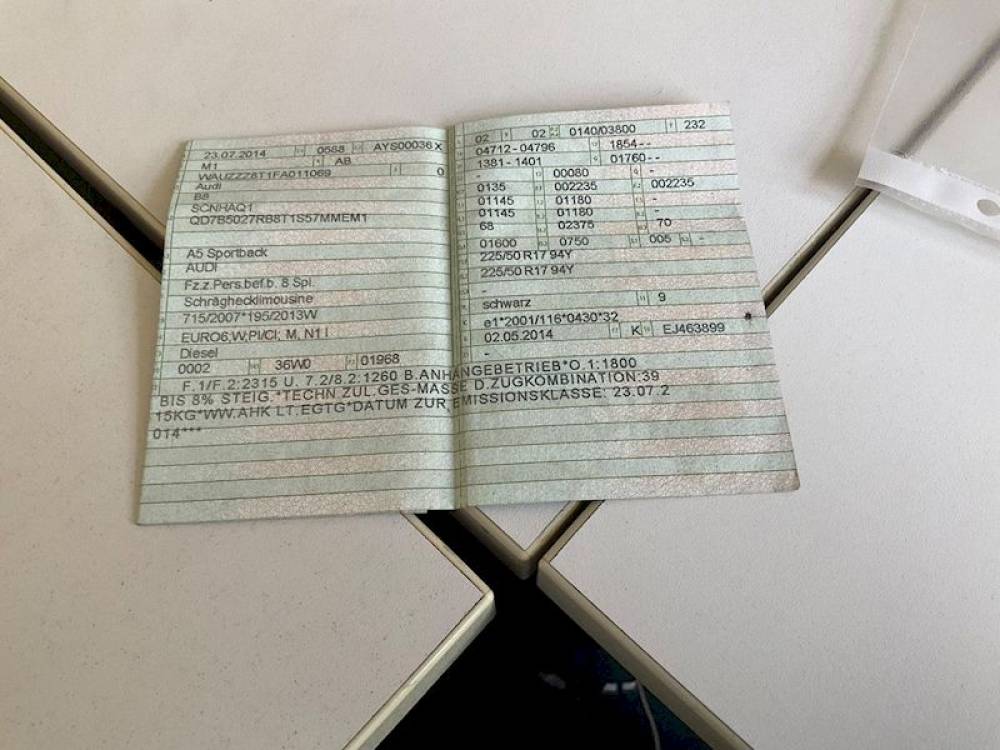 23.07.2014 0588 AYS00036 X
M1 AB
WAUZZZ8T1FA011069 0
Audi
B8
SCNHAQ1
QD7B5027RB8T1S57MMEM1
A5 Sportback
AUDI
Fz.z.Pers.bef.b. 8 Spl.
Schräghecklimousine
715/2007*195/2013W
EURO6;W;PI/CI; M, N1 I
Diesel
0002 36W0 01968
02 02 0140/03800 232
04712-04796 1854--
1381-1401 01760--
- 00080 -
0135 002235 002235
01145 01180 -
01145 01180 -
68 02375 70
01600 0750 005 -
225/50 R17 94Y
225/50 R17 94Y
-
schwarz 9
e1*2001/116*0430*32
02.05.2014 K EJ463899
-
F.1/F.2:2315 U. 7.2/8.2:1260 B.ANHÄNGEBETRIEB*O.1:1800
BIS 8% STEIG.*TECHN.ZUL.GES-MASSE D.ZUGKOMBINATION:39
15KG*WW.AHK LT.EGTG*DATUM ZUR EMISSIONSKLASSE: 23.07.2
014***